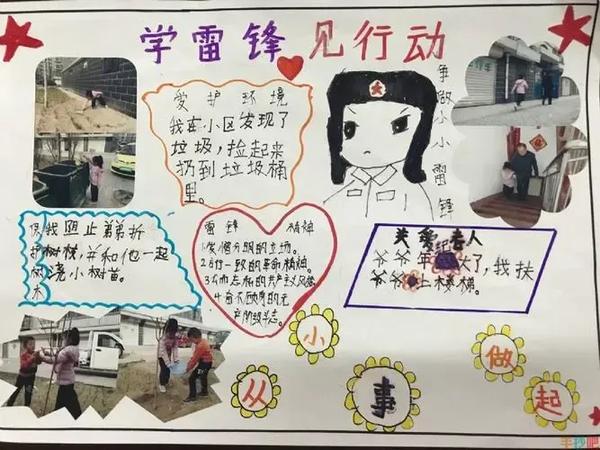 学雷锋 见行动
爱护环境
我在小区发现了
垃圾,捡起来
扔到垃圾桶
里。
争做小小雷锋
保护树木
我阻止弟弟折
树枝,并和他一起
浇小树苗。
雷锋精神
1.爱憎分明的立场。
2.言行一致的革命精神。
3.公而忘私的共产主义风格
4.奋不顾身的无
产阶级斗志。
关爱老人
爷爷年 大了,我扶
爷爷 上楼梯。
从小事做起
手抄吧